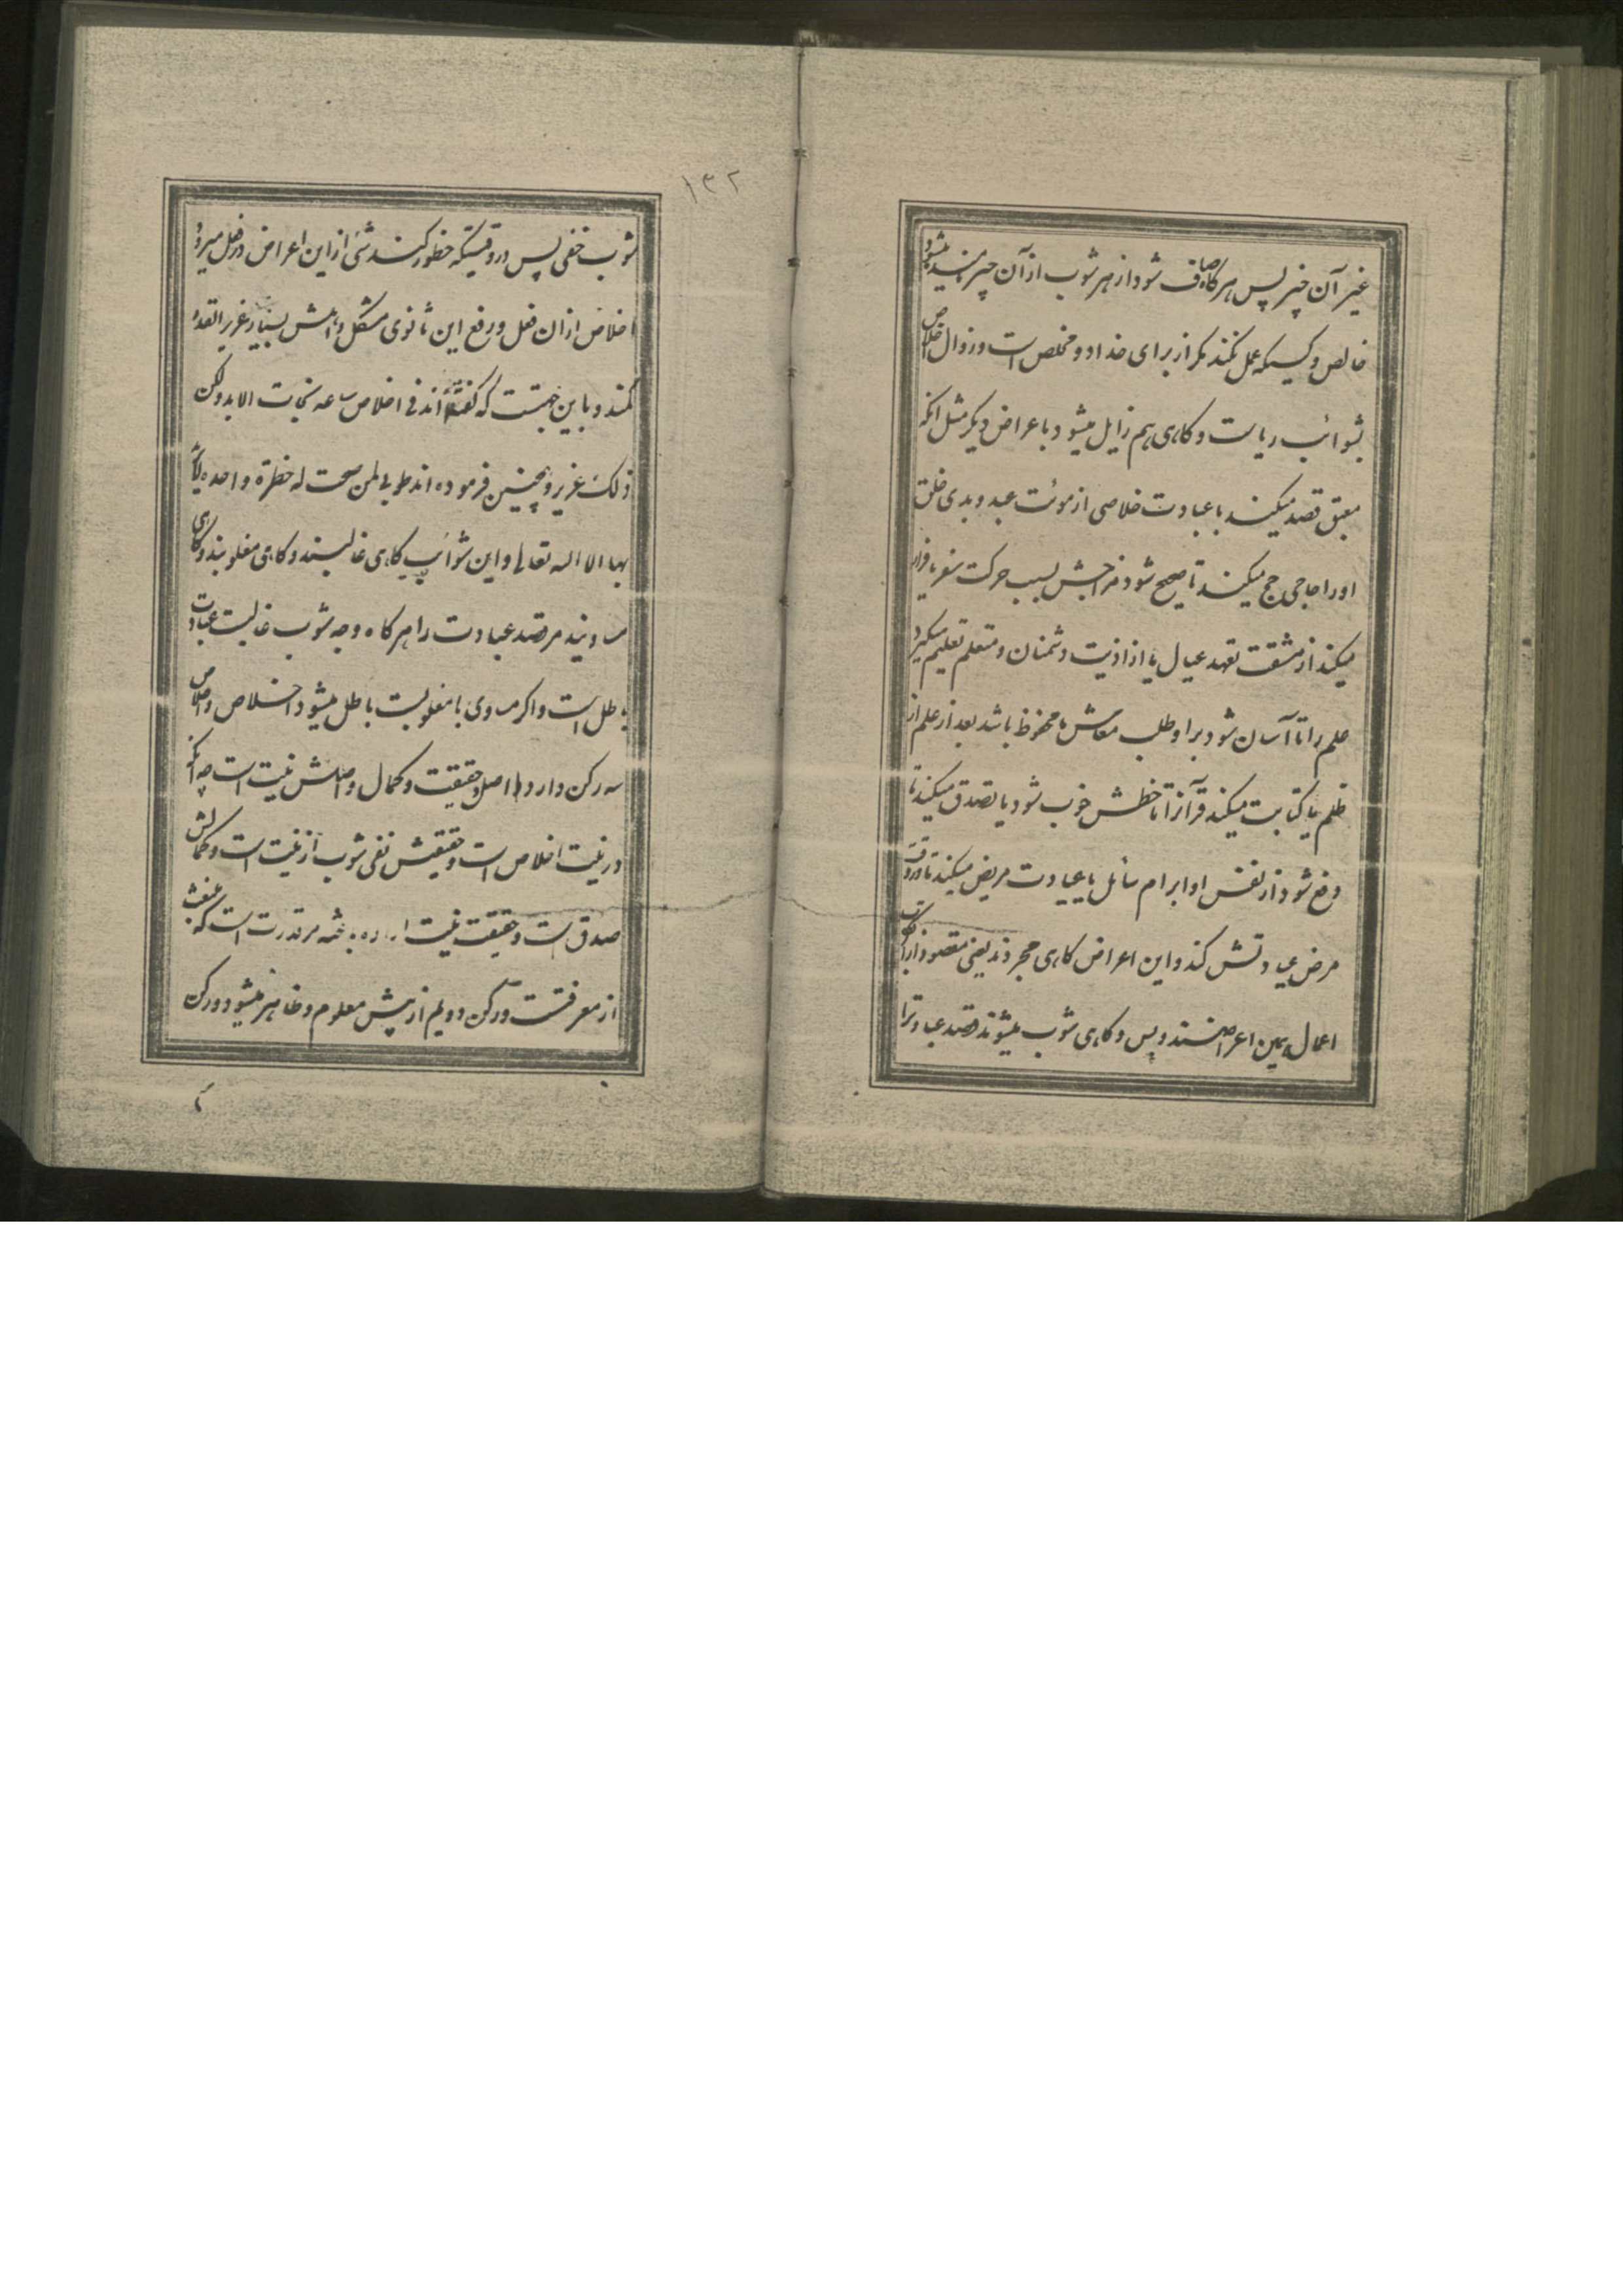 غیر آن چیز پس هرگاه صاف شود از هر شوب از آن چیز نامیده میشود
خالص و کسیکه عمل نکند مکر از برای خدا و مخلص است و زوال اخلاص
بشوائب ریاست و کاهی هم زایل میشود باعراض دیکر مثل انکه
معتق قصد میکند با عبادت خلاصی از موئت عبد و بدی خلق
اورا حاجی حج میکند تا صحیح شود مزاجش بسبب حرکت سفر یا فرار
میکند از مشقت تعهد عیال یا از اذیت دشمنان و متعلم تعلیم میکیرد
علم را تا آسان شود براو طلب معاش یا محفوظ باشد بعد از علم از
ظلم یا کتابت میکند قرآنرا تا خطش خوب شود یا تصدق میکند تا
دفع شود از نفس او ابرام سائل یا عیادت مریض میکند تا در وقت
مرض عیادتش کند و این اعراض کاهی مجردند یعنی مقصود از
اعمال همین اعراضند و بس و کاهی شوب میشوند قصد عبادترا
۱۳۲
شوب خفی پس در وقتیکه خطور کند شئ از این اعراض در فعل میرود
اخلاص از ان فعل و رفع این ثانوی مشکل و اهلش بسیار عزیز القدر
اند و باین جهتست که کفته اند فی اخلاص ساعه نجات الابد ولکن
ذلک عزیز و همچنین فرموده اند طوبی لمن صحت له خطرة واحده یراد
بها الا الله تعالی و این شوائب کاهی غالبند و کاهی مغلوبند و کاهی
مساویند مر قصد عبادت را هر کاه وجه شوب غالبست عبادت
باطل است و اکر مساوی یا مغلوبست باطل میشود اخلاص و اخلاص
سه رکن دارد اصل و حقیقت و کمال و اصلش نیت است چه انکه
در نیت اخلاص است و حقیقتش نفی شوب از نیت است و کمالش
صدق است و حقیقت نیت اراده مر قدرت است که منبعث
از معرفتست و رکن دویم از پیش معلوم و ظاهر میشود و رکن